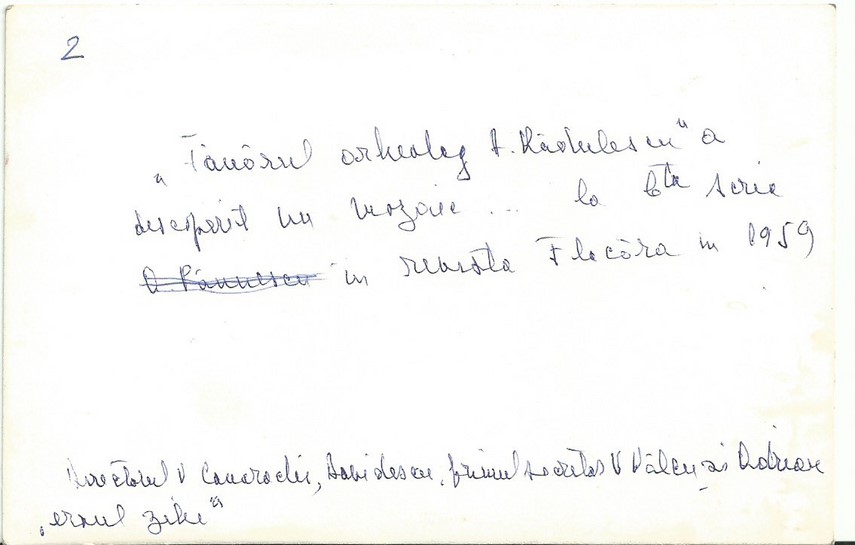 2
„Tânărul arheolog A. Rădulescu" a
descoperit un mozaic ... la Cța scrie
în revista Flacăra în 1959
Directorul V Canarache, Davidescu, primul secretar V Vâlcu și Adrian
„eroul zilei"